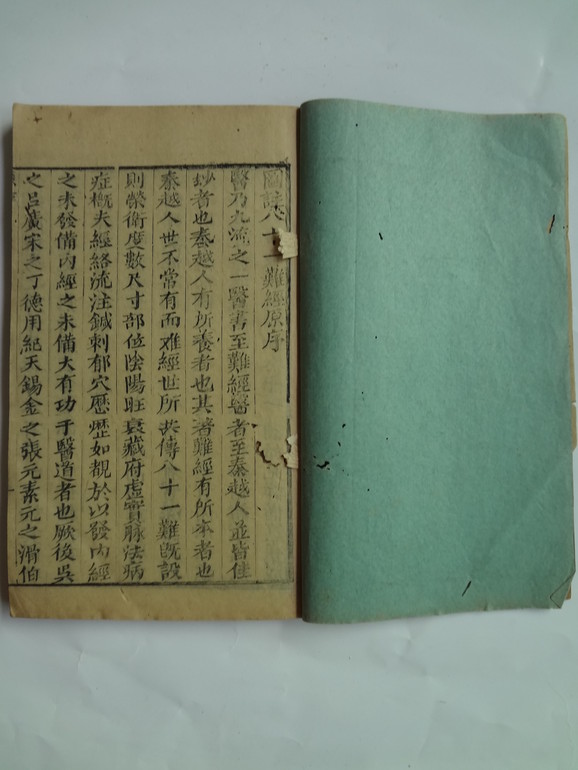 圖註八十一難經原序
醫乃九流之一醫書至難經醫者至秦越人並皆佳
妙者也秦越人有所養者也其著難經有所本者也
秦越人世不常有而难經世所共傳八十一難既設
則榮衛度數尺寸部位陰陽旺衰藏府虛實脉法病
症概夫經絡流注鍼刺郁穴歷歷如覩於以發内經
之未發備内經之未備大有功于醫道者也厥後吳
之吕廣宋之丁德用紀天錫金之張元素元之滑伯